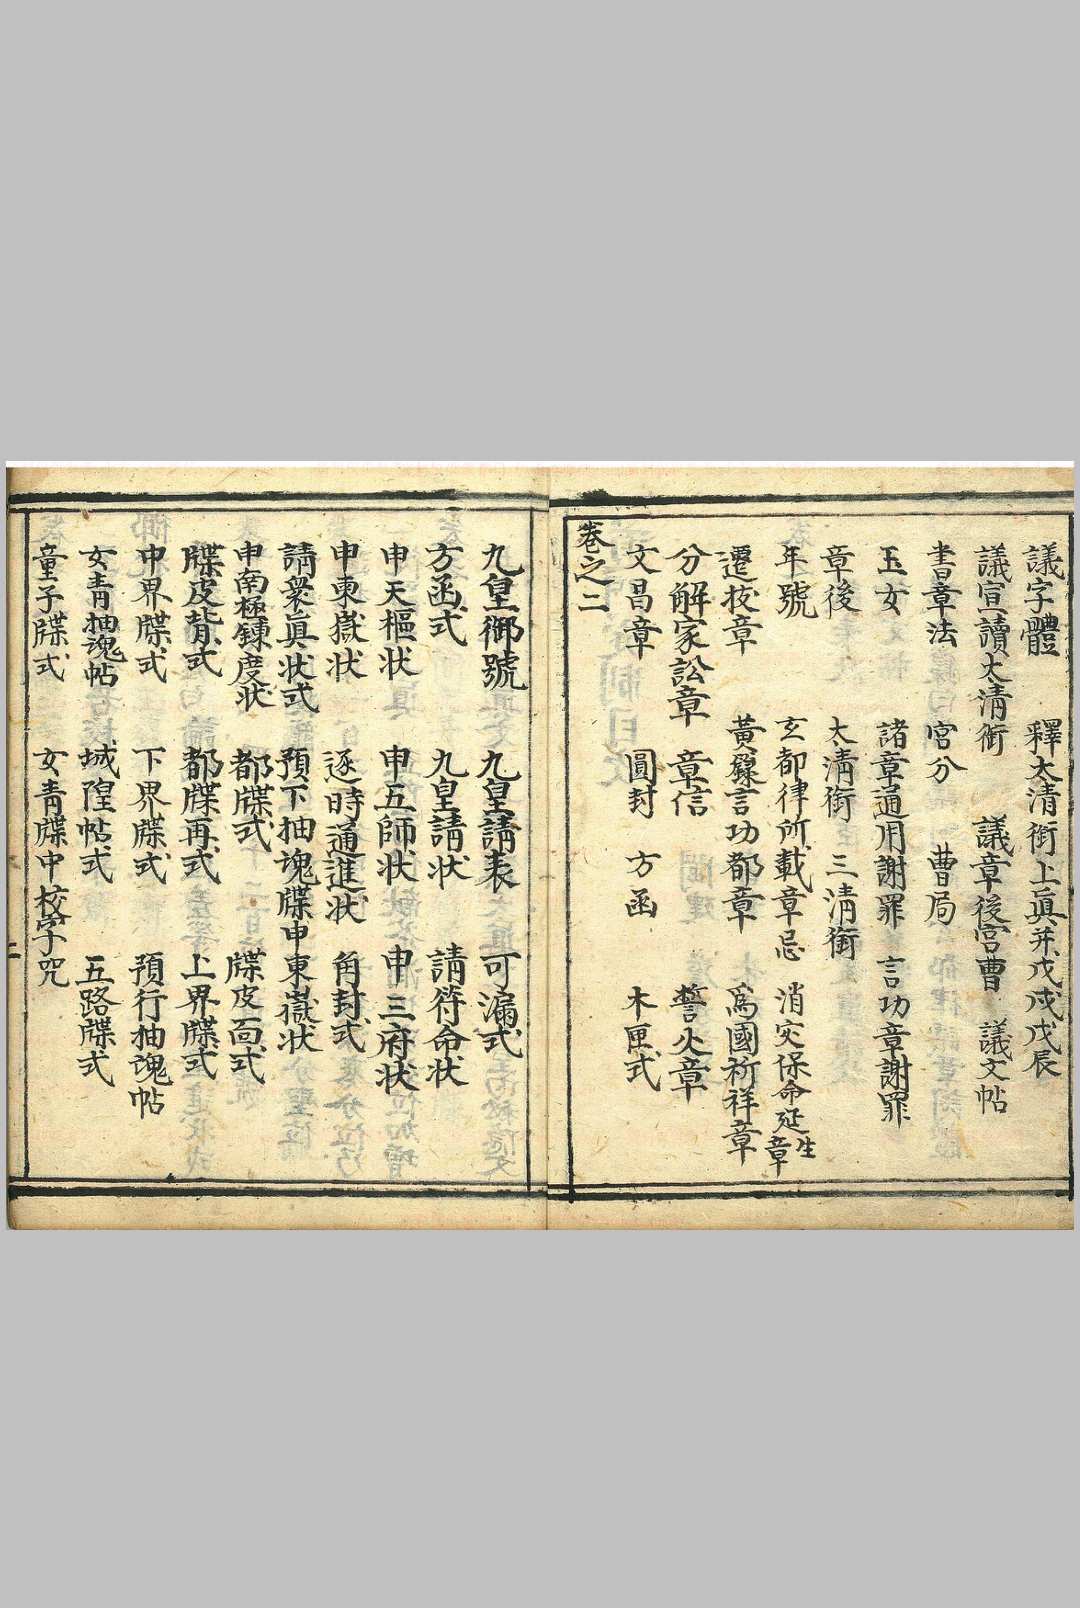 議字體 釋太清銜上真并戊戌戊辰
議宣讀太清銜 議章後宮曹 議文帖
書章法 宮分 曹局
玉女 諸章通用謝罪 言功章謝罪
章後 太淸銜 三淸銜
年號 玄都律所載章忌 消灾保命延生章
遷拔章 黃籙言功都章 爲國祈祥章
分解冢訟章 章信 誓火章
文昌章 圓封 方函 木匣式
卷之二
九皇御號 九皇請表 可漏式
方函式 九皇請状 請符命状
申天樞状 申五師状 申三府状
申東嶽状 逐時通進状 角封式
請衆眞状式 預下抽魂牒申東嶽状
申南極錬度状 都牒式 牒皮面式
牒皮背式 都牒再式 上界牒式
中界牒式 下界牒式 預行抽魂帖
女青抽魂帖 城隍帖式 五路牒式
童子牒式 女青牒中校字咒
二